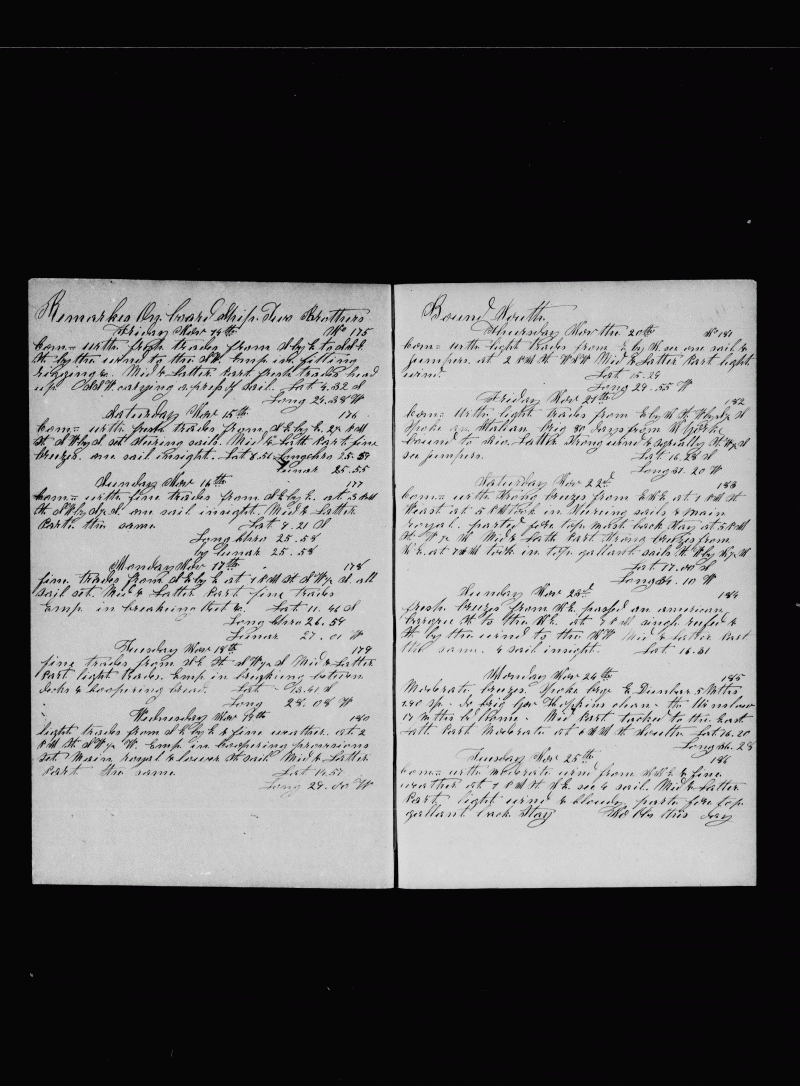 Remarkes On board Ship Two Brothers
Friday Nov 14th No 175
Com= with fresh trades from S by E to SSE
St by the wind to the SW Emp in fitting
rigging &c. Mid & Latter Part fresh trades head
up SSW carying a press of sail. Lat 4.32 S
Long 24.38 W
Saturday Nov 15th 176
Com= with fresh trades from S E by E 2 PM
St S W by S set steering sails. Mid & Latt Part fine
breezes. one sail insight. Lat 6.51 Long chro 25.57
Lunar 25.55
Sunday Nov 16th 177
Com= with fine trades from S E by E. at 3 PM
St S W by S 1/2 S one sail insight. Mid & Latter
Parts the same Lat 9.21 S
Long Chro 25.58
by Lunar 25.58
Monday Nov 17th 178
fine trades from S E by E at 1 PM St S W 1/2 S all
sail set. Mid & Latter Part fine trades
Emp. in breaking Out &c. Lat 11.41 S
Long Chro 26.59
Lunar 27.01 W
Tuesday Nov 18th 179
fine trades from S E St S W 1/2 S Mid & Latter
Part light trades. Emp in breaking between
decks & coopering bread. Lat 13.41 S
Long 28.08 W
Wednesday Nov 19th 180
light trades from S E by E & fine weather. at 2
PM St S W 1/2 W. Emp in coopering provisions
set Main royal & lower St sail Mid & Latter
Part the same Lat 14.57
Long 29.00 W
Bound South
Thursday Nov the 20th No 181
Com= with light trades from E by N. see one sail &
jumpers. at 2 PM St WSW Mid & Latter Part light
wind. Lat 15.29
Long 29.55 W
Friday Nov 21th 182
Com= With light trades from E by N St W by S 1/2 S
Spoke an Italian Brig 50 days from N Yorke
bound to Rio. Latter Strong wind & squally St W 1/2 S
see jumpers. Lat 16.28 S
Long 31.20 W
Saturday Nov 22d 183
Com= with strong breezes from ENE at 1 PM St
West at 5 PM took in Steering sails & main
royal. parted fore top mast back Stay at 5 PM
St W 1/2 N Mid & Lath Part Strong breezes from
N E. at 7 AM took in top gallant sails St W by S 1/2 S
Lat 17.00 S
Long 34.10 W
Sunday Nov 23d 184
fresh breezes from N E. passed an american
barque St to the N E. at 7 PM singl reefed &
St by the wind to the NW Mid & Latter Part
the same. 4 sail insight. Lat 16.31
Monday Nov 24th 185
Moderate breezes. Spoke brge E Dunbar 5 Mths
130 sp. do brig Gov Hopkins clean. the Winslow
17 Mths & home. Mid Part tacked to the East
Latt Part Moderate at 6 AM St South Lat 16.20
Long 34.28
Tuesday Nov 25th 186
Com= with Moderate wind from NNE & fine
weather at 7 PM St N E see 4 sail. Mid & Latter
Part light wind & cloudy parte fore top
gallant back Stay No Obs this day